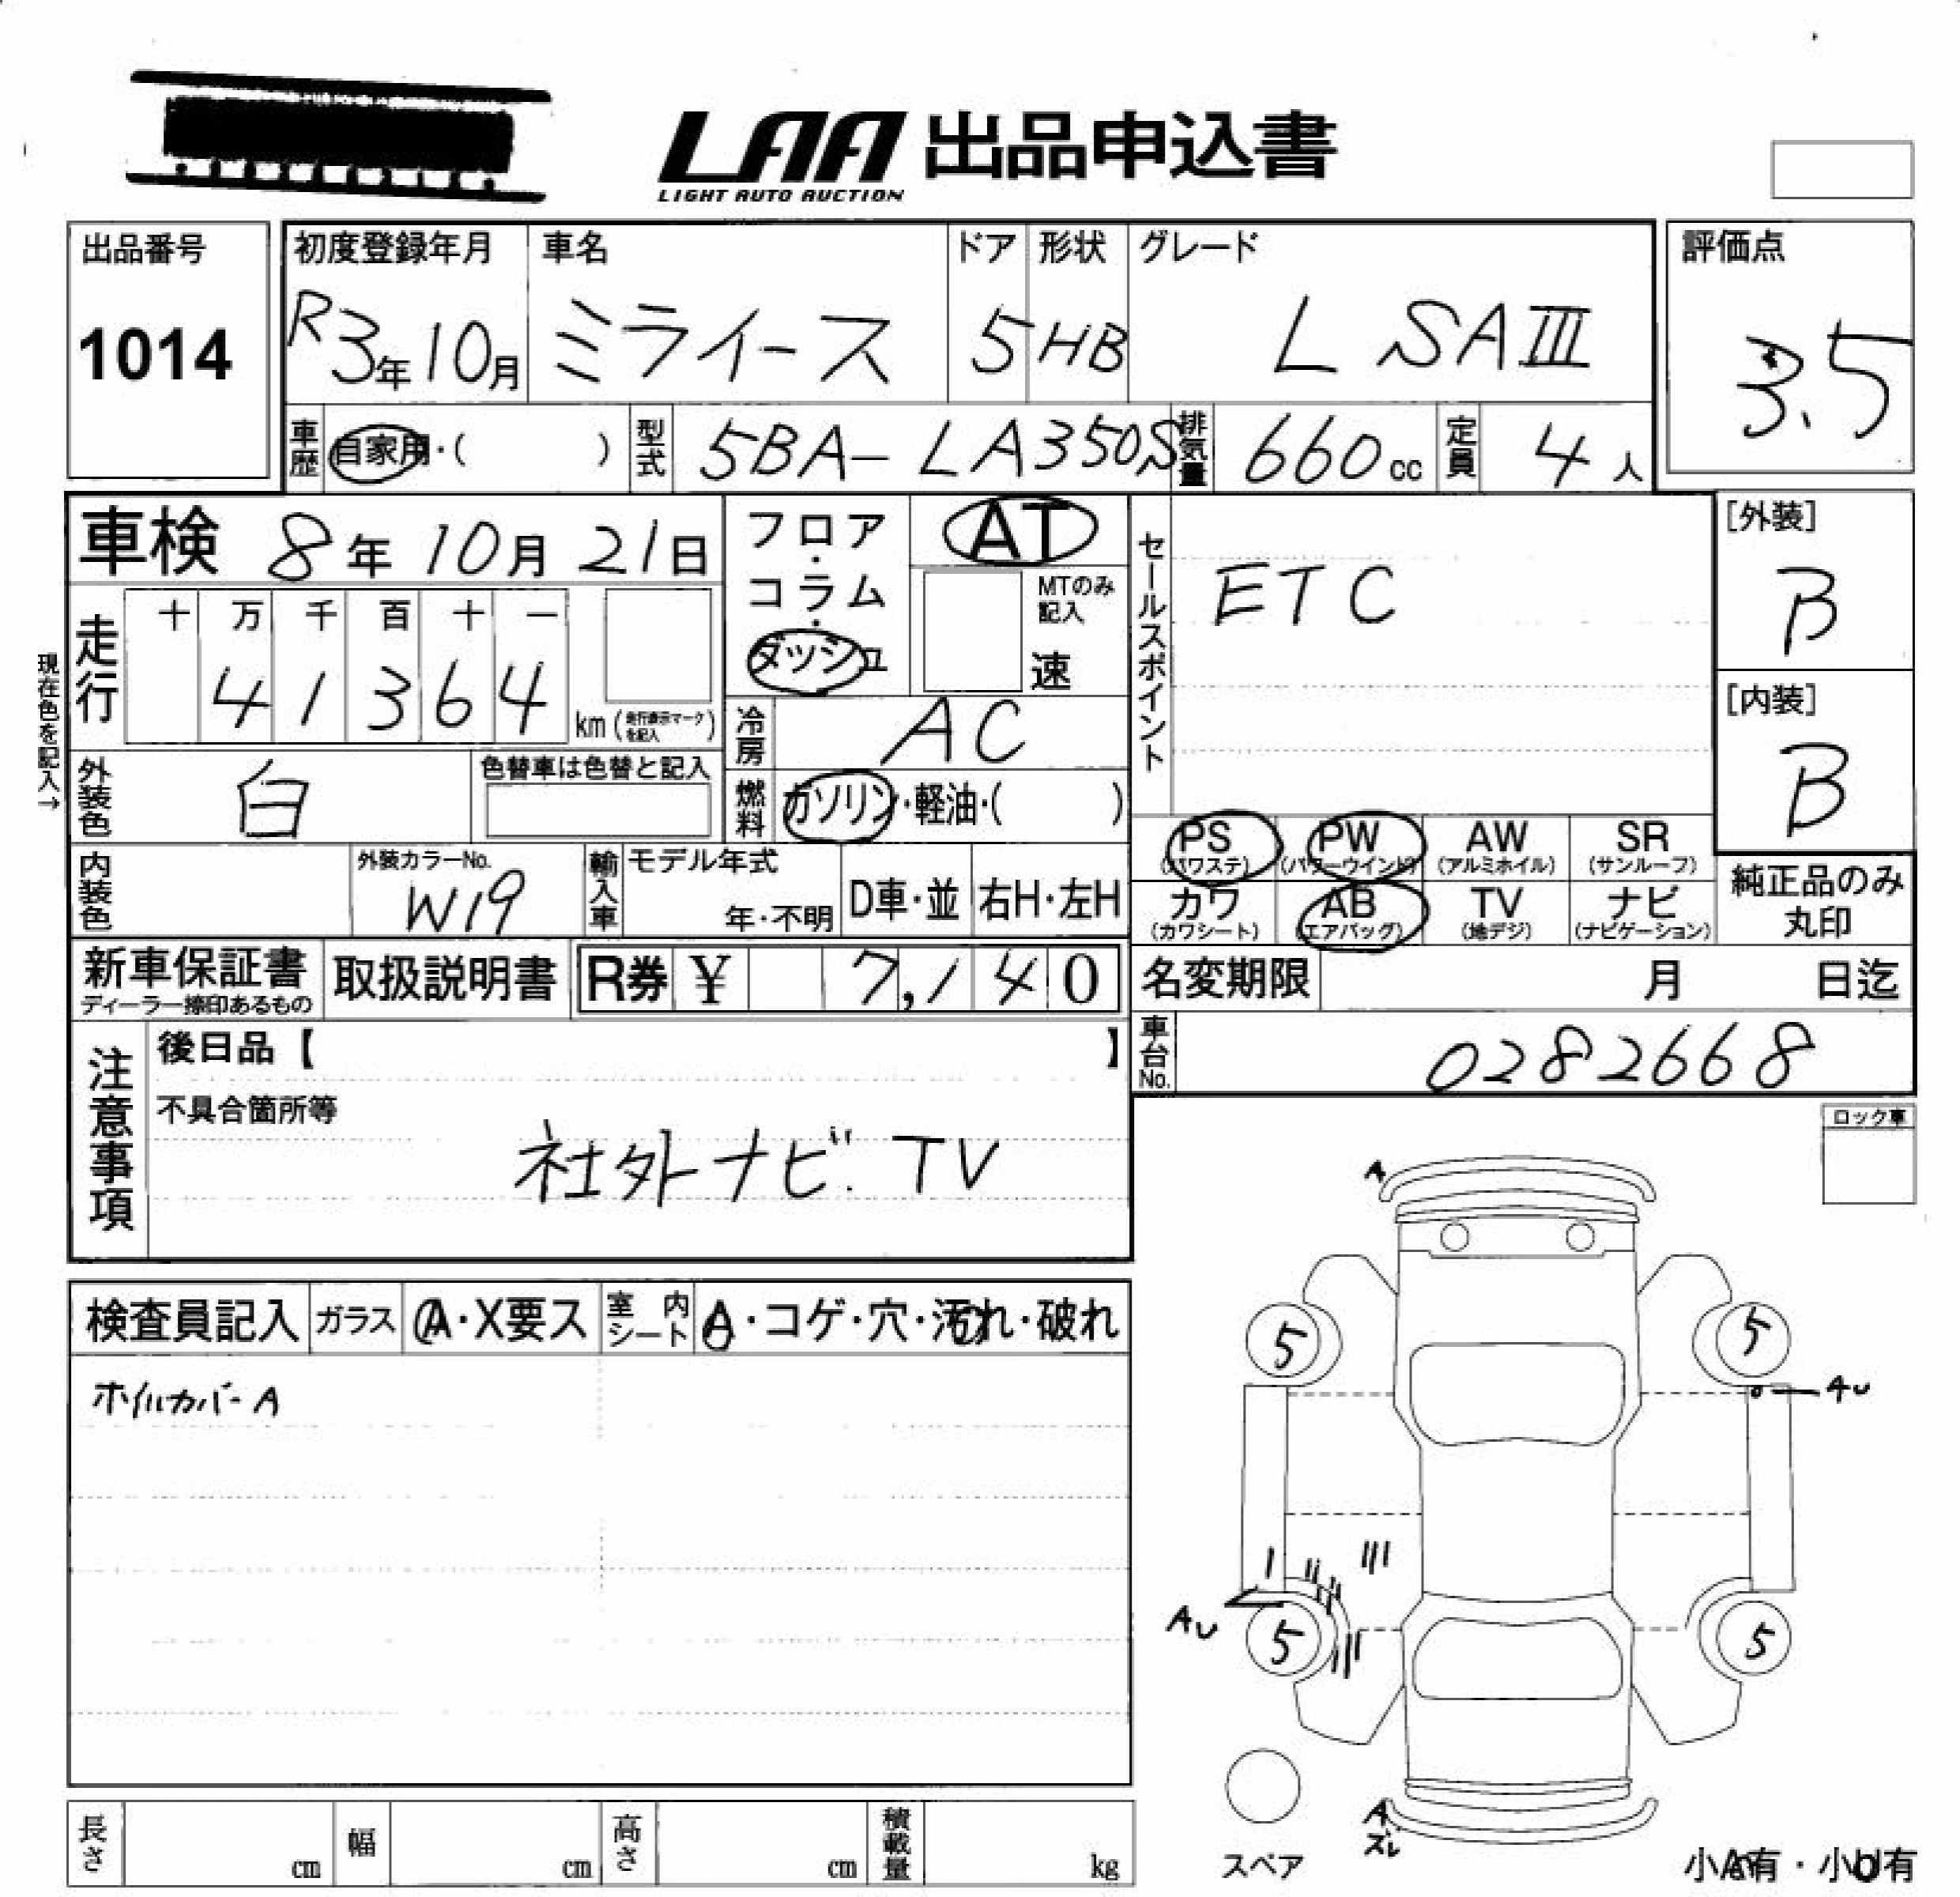 LAA 出品申込書
LIGHT AUTO AUCTION
出品番号
1014
初度登録年月 車名 ドア 形状 グレード
R3年10月 ミライース 5 HB L SAIII
評価点
3.5
車歴 自家用・( ) 型式 5BA-LA350S 排気量 660cc 定員 4人
車検 8年10月21日
フロア・コラム・ダッシュ
AT
MTのみ記入
速
セールスポイント
ETC
[外装]
B
[内装]
B
現在色を記入→
走行 十 万 千 百 十 一
4 1 3 6 4 km (走行表示マークを記入)
冷房 AC
外装色 白 色替車は色替と記入
燃料 ガソリン・軽油・( )
PS (パワステ) PW (パワーウインド) AW (アルミホイル) SR (サンルーフ)
カワ (カワシート) AB (エアバッグ) TV (地デジ) ナビ (ナビゲーション)
純正品のみ丸印
内装色 外装カラーNo. W19 輸入車 モデル年式 年・不明 D車・並 右H・左H
新車保証書 取扱説明書 R券 ¥ 7,140
ディーラー捺印あるもの
名変期限 月 日迄
車台No. 0282668
注意事項
後日品【 】
不具合箇所等
社外ナビ.TV
ロック車
検査員記入 ガラス A・X要ス 室内シート A・コゲ・穴・汚れ・破れ
ホイルカバーA
A
5 5
AU
AU
5 5
A
ズレ
スペア
小A有・小U有
長さ cm 幅 cm 高さ cm 積載量 kg